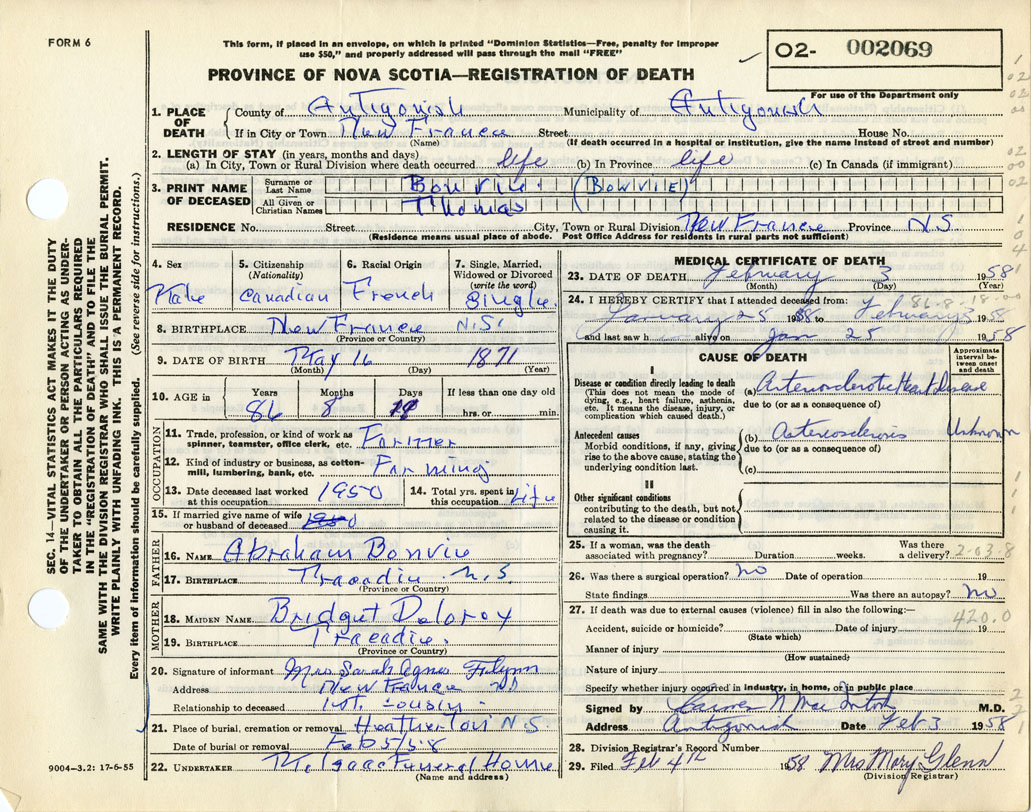 FORM 6
This form, if placed in an envelope, on which is printed "Dominion Statistics—Free, penalty for improper
use $50," and properly addressed will pass through the mail "FREE"
O2- 002069
For use of the Department only
PROVINCE OF NOVA SCOTIA—REGISTRATION OF DEATH
SEC. 14—VITAL STATISTICS ACT MAKES IT THE DUTY
OF THE UNDERTAKER OR PERSON ACTING AS UNDER-
TAKER TO OBTAIN ALL THE PARTICULARS REQUIRED
IN THE "REGISTRATION OF DEATH" AND TO FILE THE
SAME WITH THE DIVISION REGISTRAR WHO SHALL ISSUE THE BURIAL PERMIT.
WRITE PLAINLY WITH UNFADING INK. THIS IS A PERMANENT RECORD.
Every item of information should be carefully supplied. (See reverse side for instructions.)
1. PLACE OF DEATH
County of Antigonish Municipality of Antigonish
If in City or Town New France Street House No.
(Name) (If death occurred in a hospital or institution, give the name instead of street and number)
2. LENGTH OF STAY (in years, months and days)
(a) In City, Town or Rural Division where death occurred life (b) In Province life (c) In Canada (if immigrant)
3. PRINT NAME OF DECEASED
Surname or Last Name Bonvie. (BOWVIE)
All Given or Christian Names Thomas
RESIDENCE No. Street City, Town or Rural Division New France Province N.S.
(Residence means usual place of abode. Post Office Address for residents in rural parts not sufficient)
4. Sex Male
5. Citizenship (Nationality) Canadian
6. Racial Origin French
7. Single, Married, Widowed or Divorced (write the word) Single
8. BIRTHPLACE New France N.S.
(Province or Country)
9. DATE OF BIRTH May 16 1871
(Month) (Day) (Year)
10. AGE in Years Months Days If less than one day
86 8 19 hrs. or min.
OCCUPATION
11. Trade, profession, or kind of work as spinner, teamster, office clerk, etc. Farmer
12. Kind of industry or business, as cotton-mill, lumbering, bank, etc. Farming
13. Date deceased last worked at this occupation 1950
14. Total yrs. spent in this occupation Life
15. If married give name of wife or husband of deceased 1950
FATHER
16. NAME Abraham Bonvie
17. BIRTHPLACE Tracadie N.S
(Province or Country)
MOTHER
18. MAIDEN NAME Bridget Delorey
19. BIRTHPLACE Tracadie.
(Province or Country)
20. Signature of informant Mrs Sarah Agnes Flynn
Address New France NS
Relationship to deceased 1st. cousin
21. Place of burial, cremation or removal Heatherton N S
Date of burial or removal Feb 5/58
22. UNDERTAKER McIsaac Funeral Home
(Name and address)
9004-3.2: 17-6-55
MEDICAL CERTIFICATE OF DEATH
23. DATE OF DEATH February 3 1958
(Month) (Day) (Year)
24. I HEREBY CERTIFY that I attended deceased from: 86-8-18-00
January 25 1958 to February 3 1958
and last saw h alive on Jan 25 1958
CAUSE OF DEATH
Approximate interval between onset and death
I
Disease or condition directly leading to death
(This does not mean the mode of dying, e.g., heart failure, asthenia, etc. It means the disease, injury, or complication which caused death.)
(a) Arteriosclerotic Heart Disease
due to (or as a consequence of)
Antecedent causes
Morbid conditions, if any, giving rise to the above cause, stating the underlying condition last.
(b) Arteriosclerosis Unknown
due to (or as a consequence of)
(c)
II
Other significant conditions
contributing to the death, but not related to the disease or condition causing it.
25. If a woman, was the death associated with pregnancy? Duration weeks. Was there a delivery? 2-03.8
26. Was there a surgical operation? No Date of operation 19
State findings Was there an autopsy? No
27. If death was due to external causes (violence) fill in also the following:—
420.0
Accident, suicide or homicide? Date of injury 19
(State which)
Manner of injury
(How sustained)
Nature of injury
Specify whether injury occurred in industry, in home, or in public place
Signed by N Mac Intosh M.D.
Address Antigonish Date Feb 3 1958
28. Division Registrar's Record Number
29. Filed Feb 4th 1958 Mrs Mary Glenn
(Division Registrar)